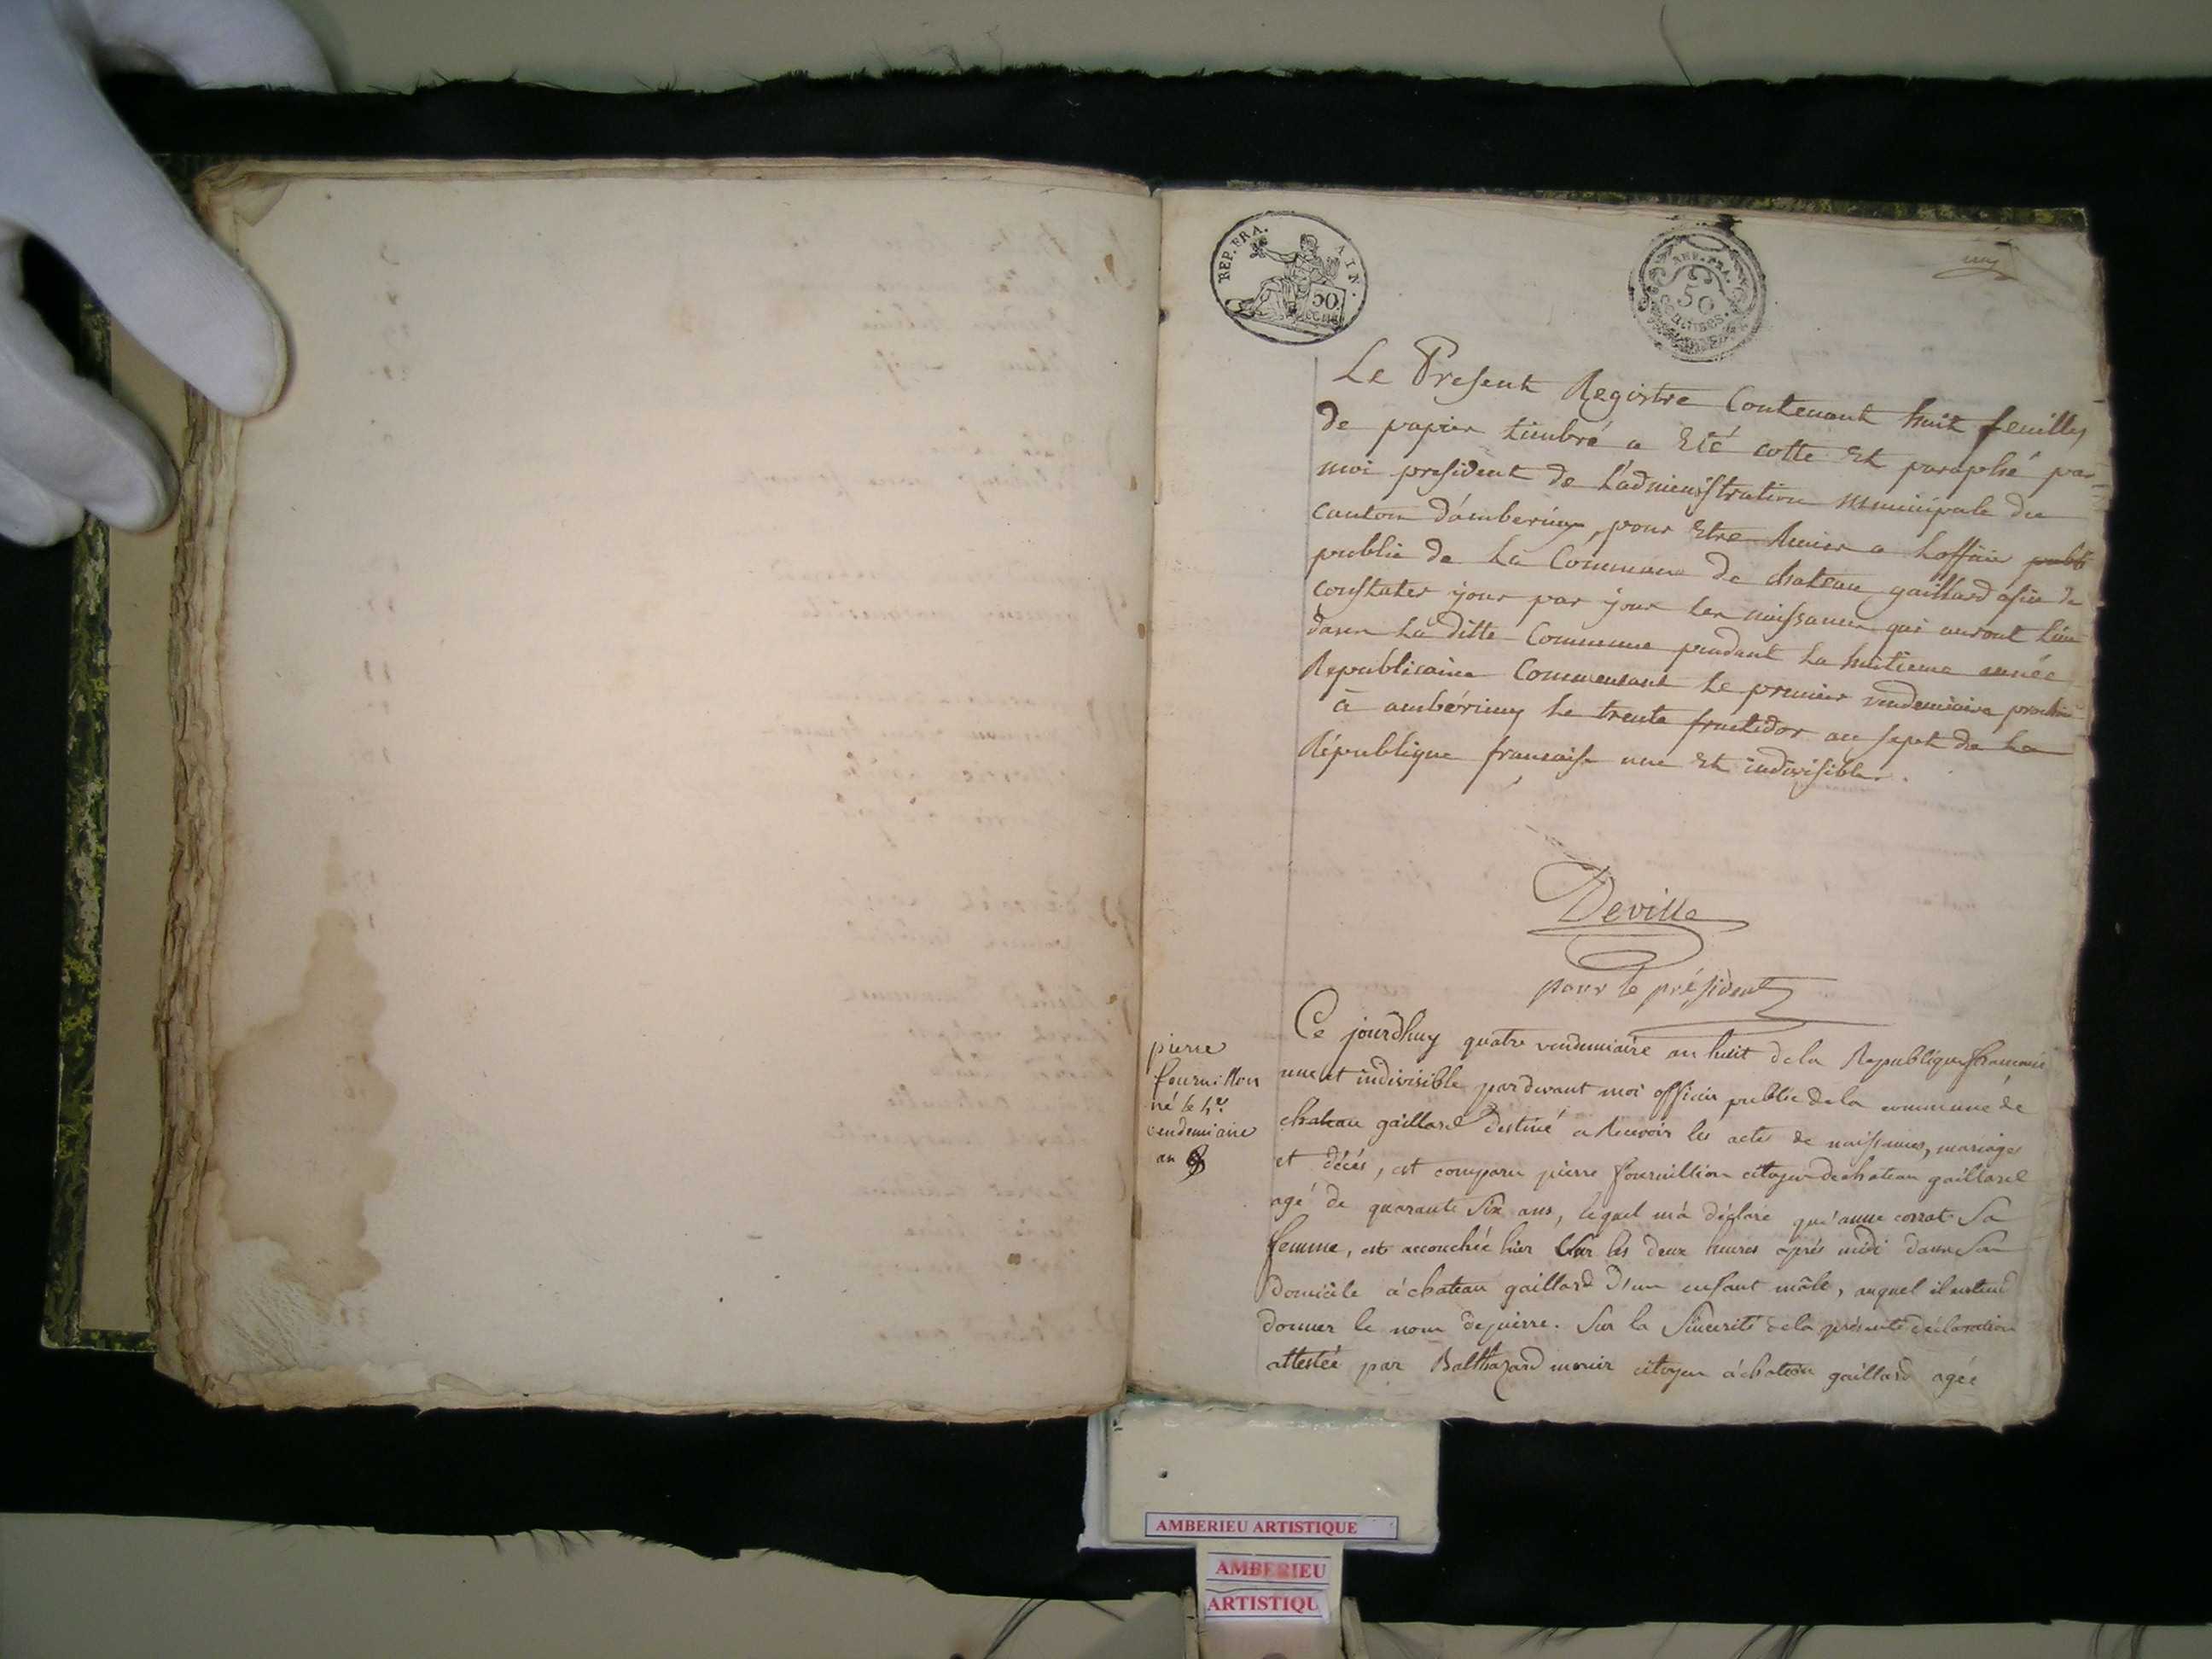 REP. FRA. AIN.
50.
REP. FRA.
50
Centimes.
Le Present Registre Contenant huit feuilles
de papier timbré a Eté cotté Et paraphé par
moi president de l'administration municipale du
canton d'ambérieux, pour Etre Remis a L'officier publi
public de La Commune de chateau gaillard afin de
constater jour par jour Les naissances qui auront Lieu
dans La ditte Commune pendant La huitieme année
Republicaine Commensant Le premier vendemiaire prochain
à ambérieux Le trente fructidor an sept de La
République francaise une Et indivisible.
Deville
pour le président
pierre
fournillon
né le 4e
vendemiaire
an 8
Ce jourdhuy quatre vendemiaire an huit de la Republique francaise
une et indivisible pardevant moi officier public de la commune de
chateau gaillard destiné a Recevoir les actes de naissances, mariages
et décés, est comparu pierre fournillion citoyen de chateau gaillard
agé de quarante Six ans, lequel m'a déclaré qu'anne corrat Sa
femme, est accouchée hier Sur les deux heures aprés midi dans Son
Domicile à chateau gaillard d'un enfant mâle, auquel il entend
donner le nom de pierre. Sur la Sincerité de la présente déclaration
attestée par Balthazard monir citoyen à chateau gaillard agée
AMBERIEU ARTISTIQUE
AMBERIEU
ARTISTIQU